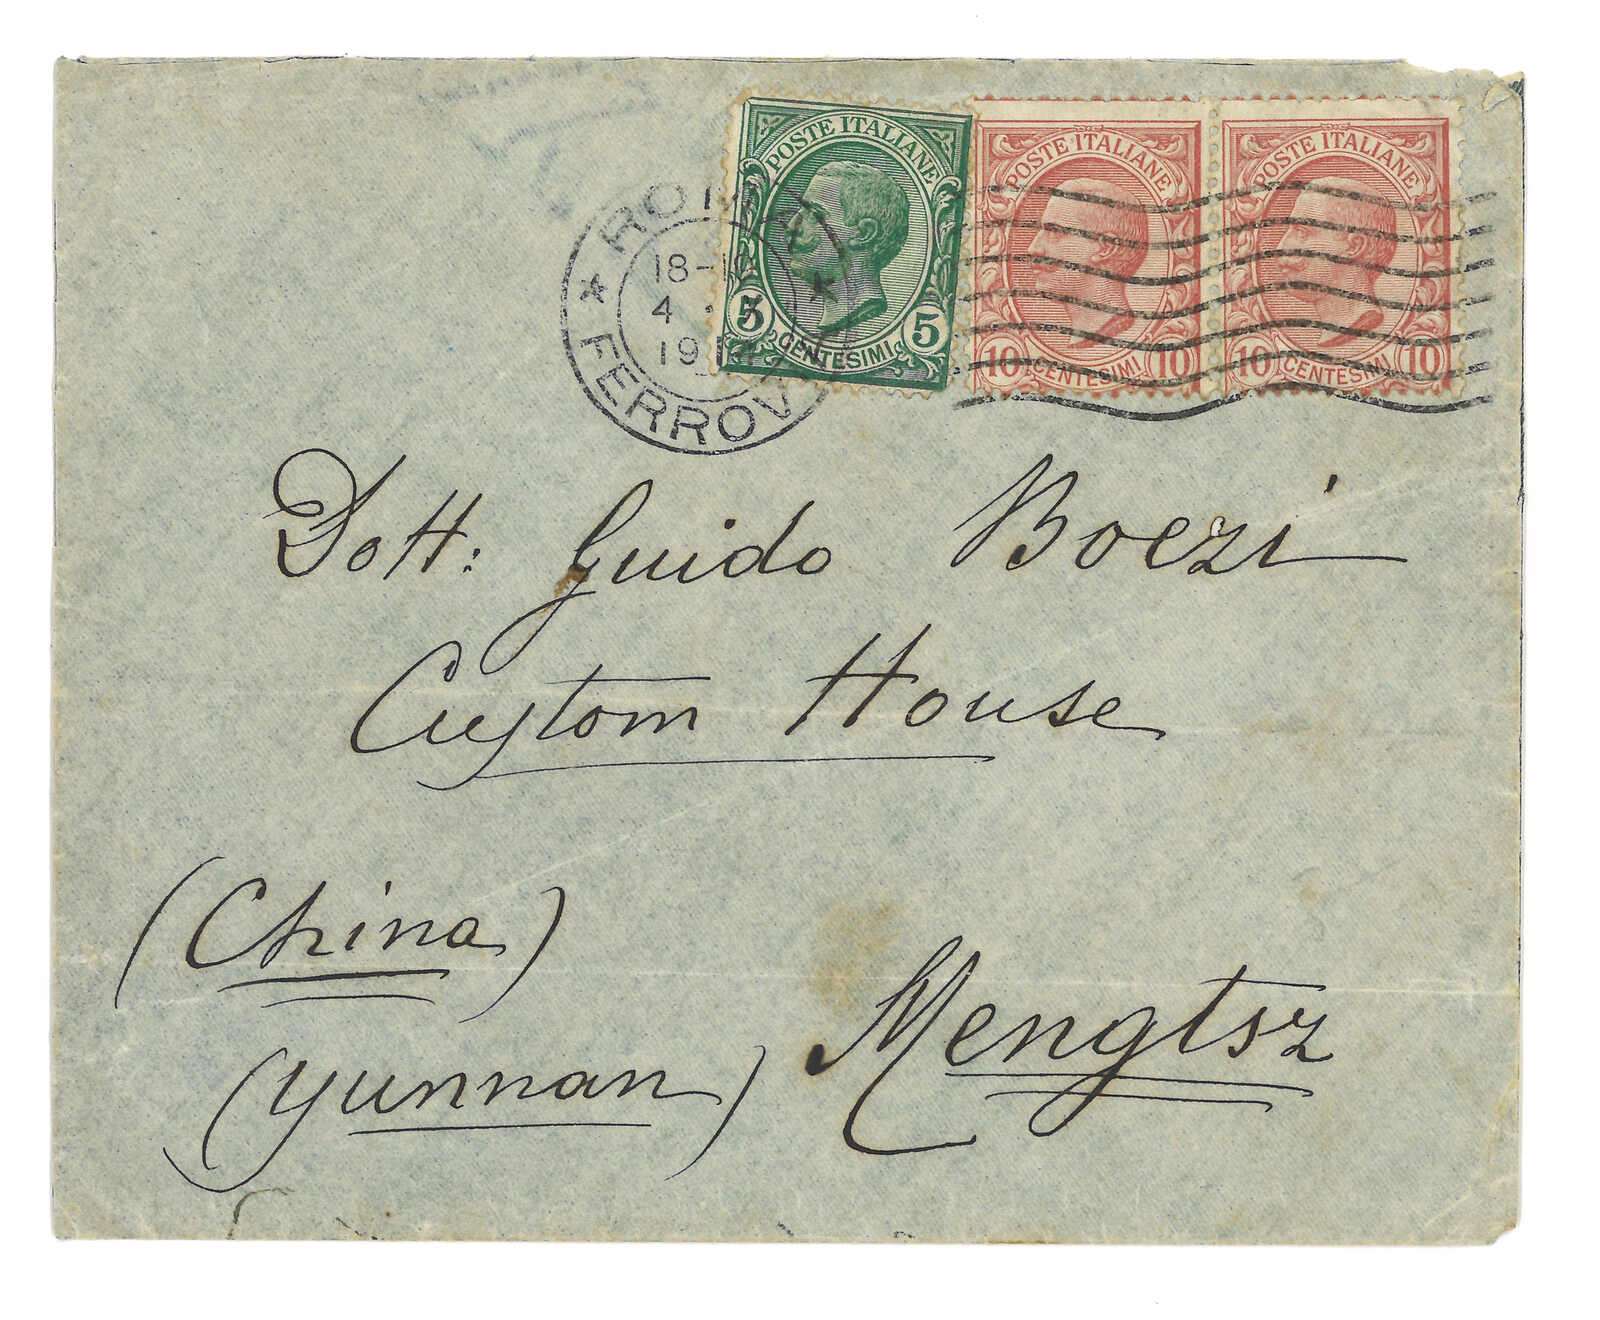 POSTE ITALIANE
5 CENTESIMI 5
POSTE ITALIANE
10 CENTESIMI 10
POSTE ITALIANE
10 CENTESIMI 10
ROMA
18-19
4
FERROVIA
Dott: Guido Boezi
Custom House
(China)
Mengtsz
(Yunnan)